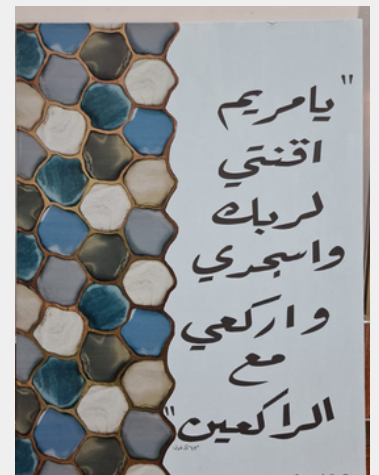 "يا مريم
اقنتي
لربك
واسجدي
واركعي
مع
الراكعين"